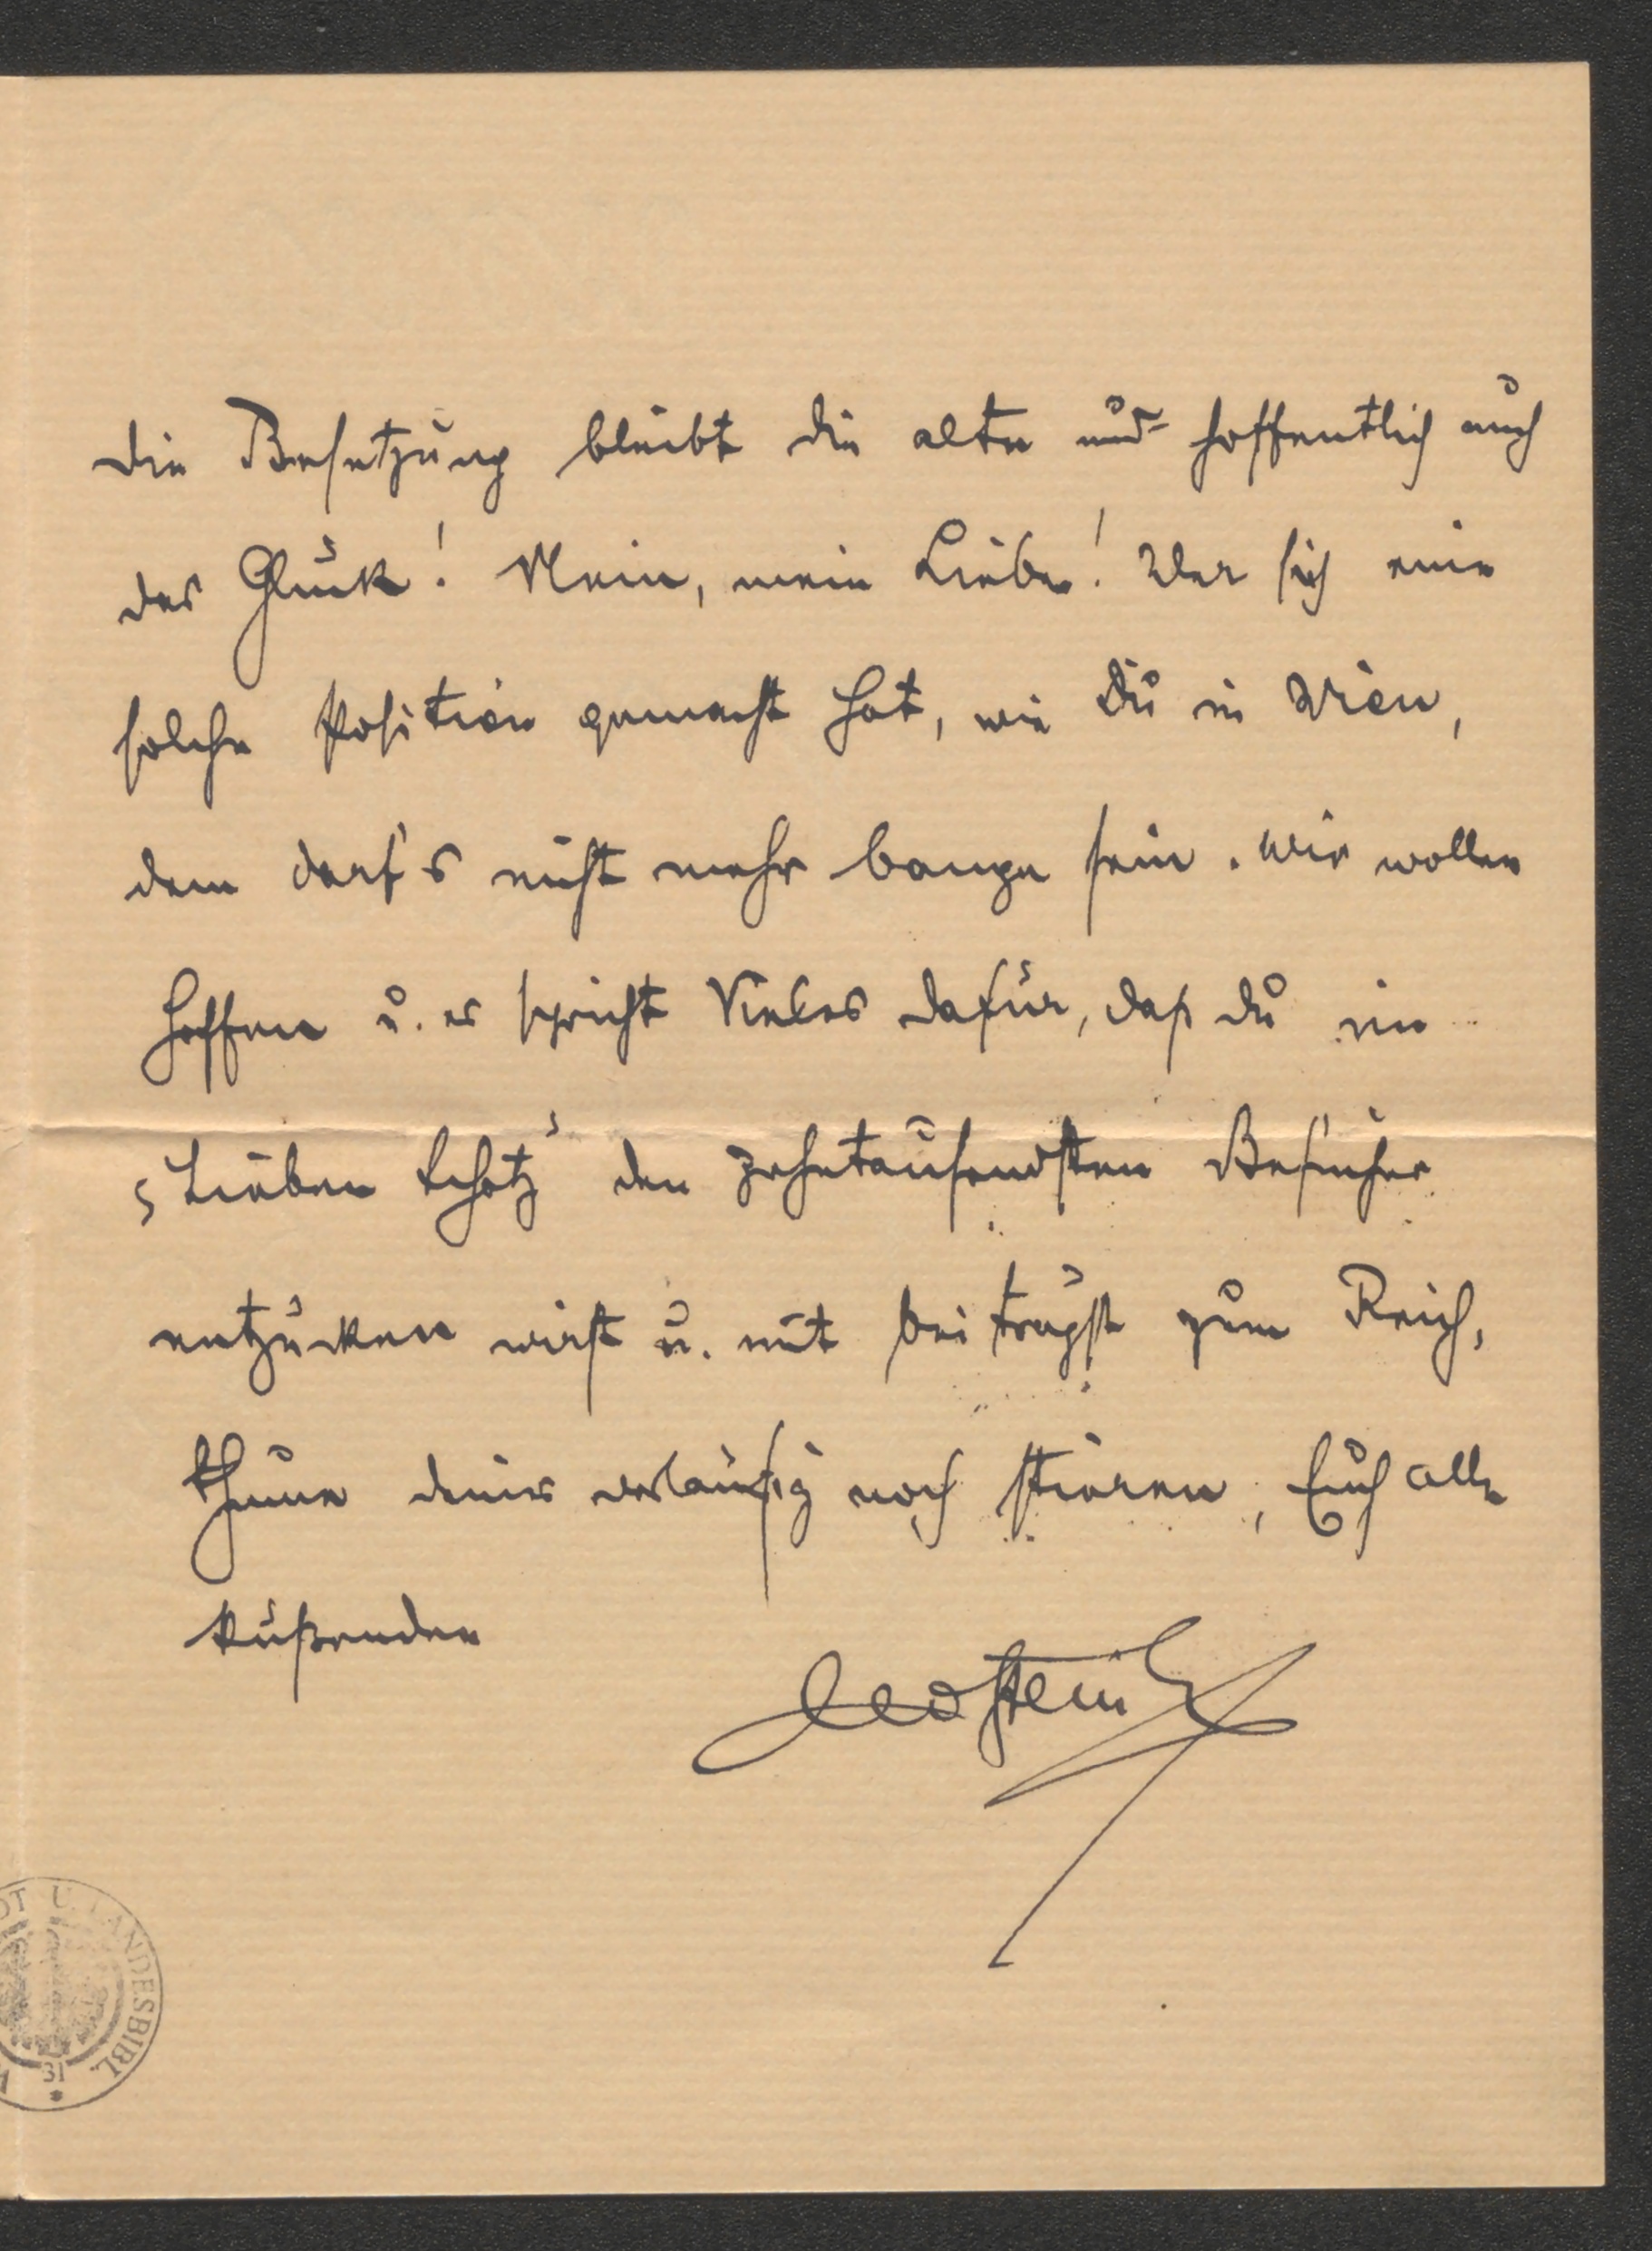 die Besetzung bleibt die alte und hoffentlich auch
das Glück! Nein, mein Lieber! Wer sich eine
solche Position gemacht hat, wie Du in Wien,
dem darf's nicht mehr bange sein. Wir wollen
hoffen u. es spricht Vieles dafür, daß du im
"Lieben Schatz" den zehntausendsten Besucher
entzücken wirst u. mit beiträgst zum Reich,
thume deines vorläufig noch stieren, Euch alle
küßenden
Leo Stein
U. LANDESBIBL.
31